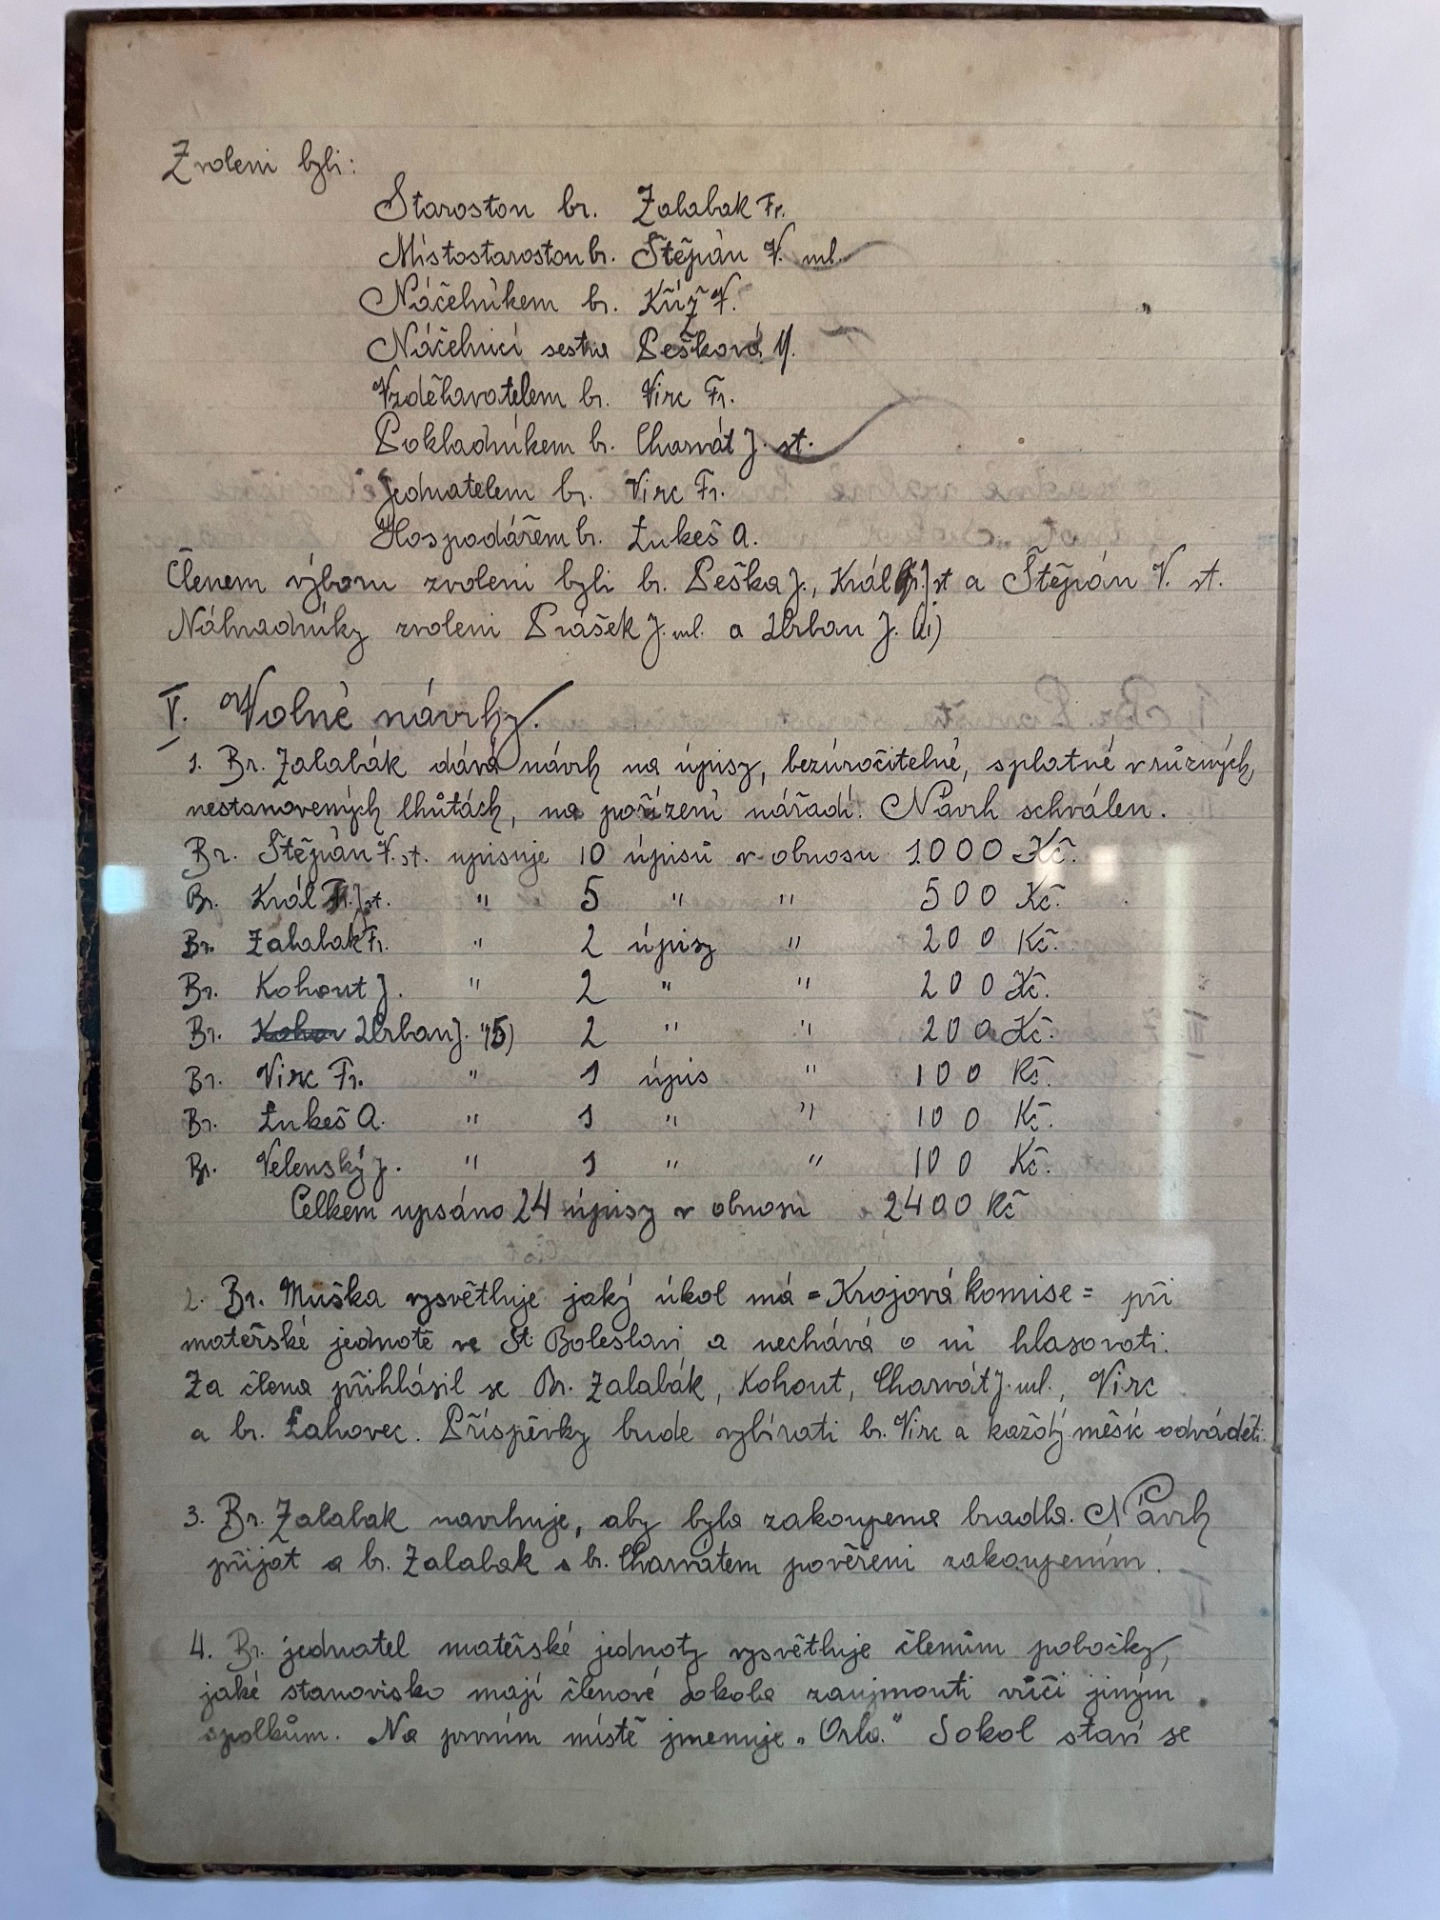 Zvoleni byli:
Starostou br. Zalabak Fr.
Místostarostou br. Štěpán V. ml.
Náčelníkem br. Kříž V.
Náčelnicí sestra Pešková M.
Vzdělavatelem br. Virc Fr.
Pokladníkem br. Charvát J. st.
Jednatelem br. Virc Fr.
Hospodářem br. Lukeš A.
Členem výboru zvoleni byli br. Peška J., Král J. st a Štěpán V. st.
Náhradníky zvoleni Prášek J. ml. a Urban J.
V. Volné návrhy.
1. Br. Zalabák dává návrh na úpisy, bezúročitelné, splatné v různých,
nestanovených lhůtách, na pořízení nářadí. Návrh schválen.
Br. Štěpán V. st. upisuje 10 úpisů v obnosu 1000 Kč.
Br. Král J. st. " 5 " " 500 Kč.
Br. Zalabak Fr. " 2 úpisy " 200 Kč.
Br. Kohout J. " 2 " " 200 Kč.
Br. Urban J. "(5) 2 " " 200 Kč.
Br. Virc Fr. " 1 úpis " 100 Kč.
Br. Lukeš A. " 1 " " 100 Kč.
Br. Velenský J. " 1 " " 100 Kč.
Celkem upsáno 24 úpisy v obnosu 2400 Kč
2. Br. Muška vysvětluje jaký úkol má = Krojová komise = při
mateřské jednotě ve St. Boleslavi a nechává o ní hlasovati.
Za člena přihlásil se Br. Zalabák, Kohout, Charvát J. ml., Virc
a br. Lahovec. Příspěvky bude vybírati br. Virc a každý měsíc odváděti.
3. Br. Zalabak navrhuje, aby byla zakoupena bradla. Návrh
přijat a br. Zalabak s br. Charvátem pověřeni zakoupením.
4. Br. jednatel mateřské jednoty vysvětluje členům pobočky,
jaké stanovisko mají členové Sokola zaujmouti vůči jiným
spolkům. Na prvním místě jmenuje „Orla.“ Sokol staví se